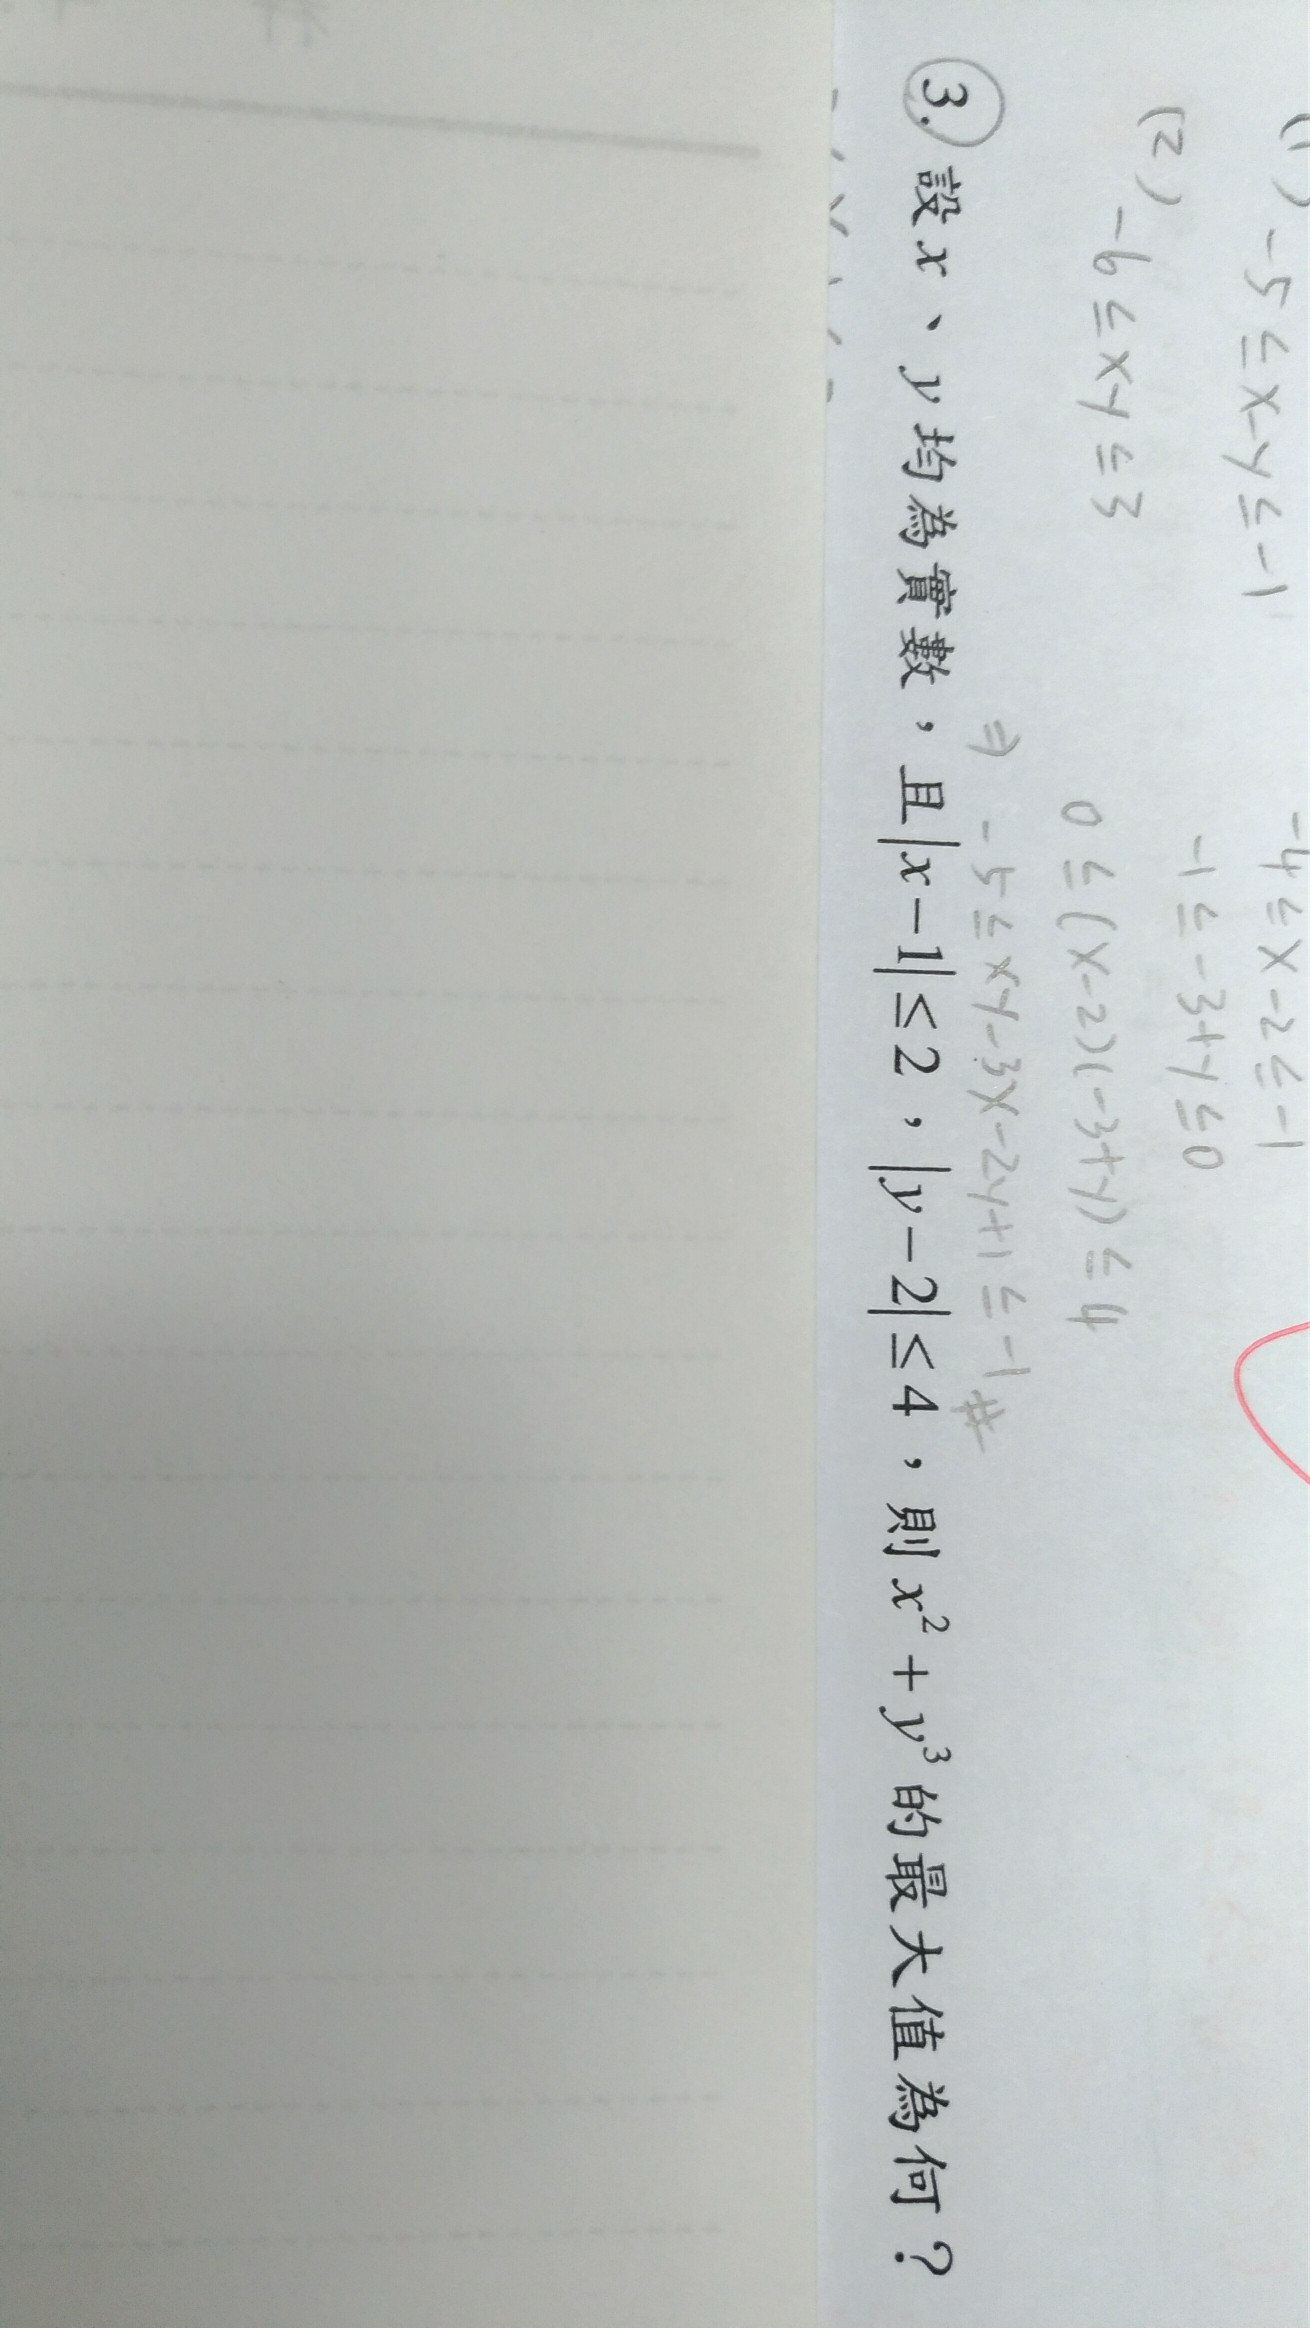 (1) -5≤x-y≤-1
(2) -6≤xy≤3
-4≤x-2≤-1
-1≤-3+y≤0
0≤(x-2)(-3+y)≤4
⇒ -5≤xy-3x-2y+1≤-1 #
3. 設x、y均為實數，且|x-1|≤2，|y-2|≤4，則x²+y³的最大值為何？